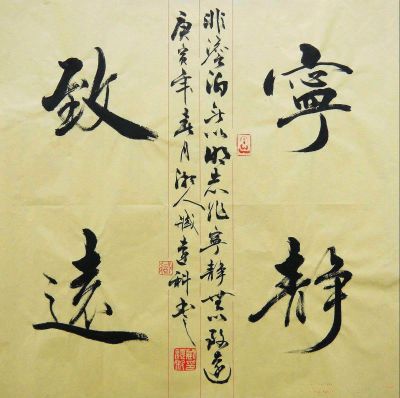 寧靜
致遠
非澹泊无以明志非寧靜無以致遠
庚寅年春月湘人科書